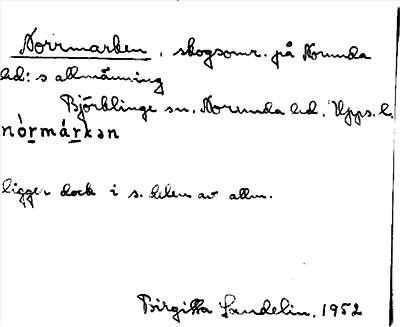 Norrmarken, skogsomr. på Norunda
hd:s allmänning
Björklinge sn. Norunda hd. Upps. l.
nòrmárkən
ligger dock i s. delen av allm.
Birgitta Sandelin, 1952